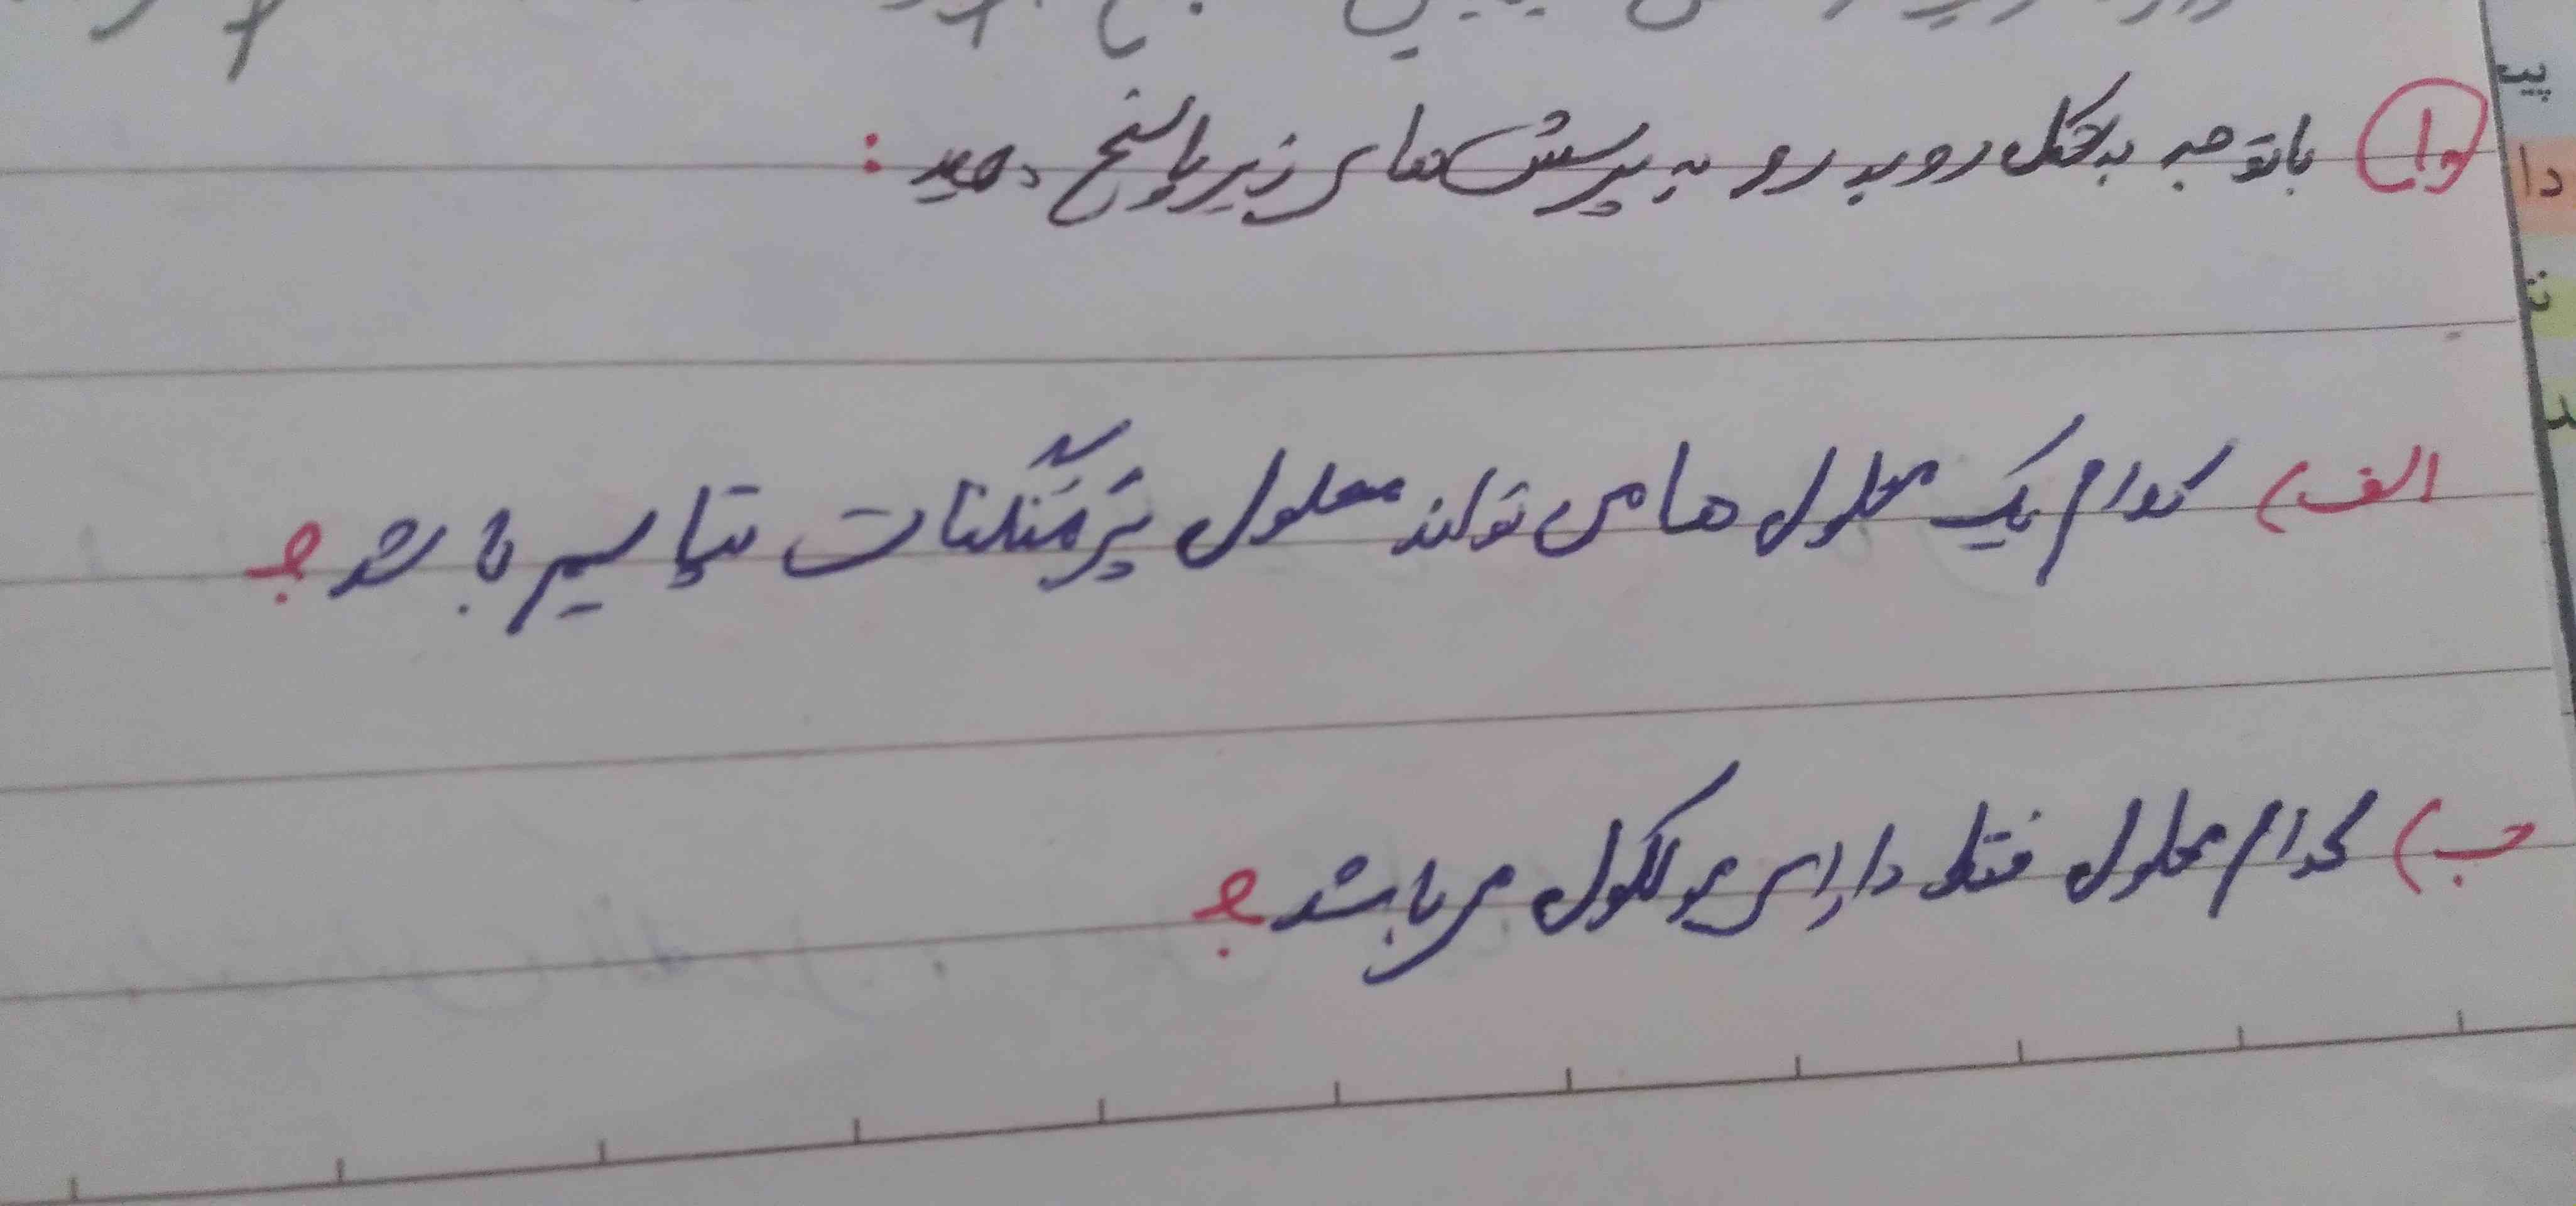 ۱۰) با توجه به شکل رو به رو به پرسش های زیر پاسخ دهید :
الف) کدام یک محلول ها می تواند محلول پَرمَنگنات پتاسیم باشد؟
ب) کدام محلول فقط دارای مولکول می باشد؟